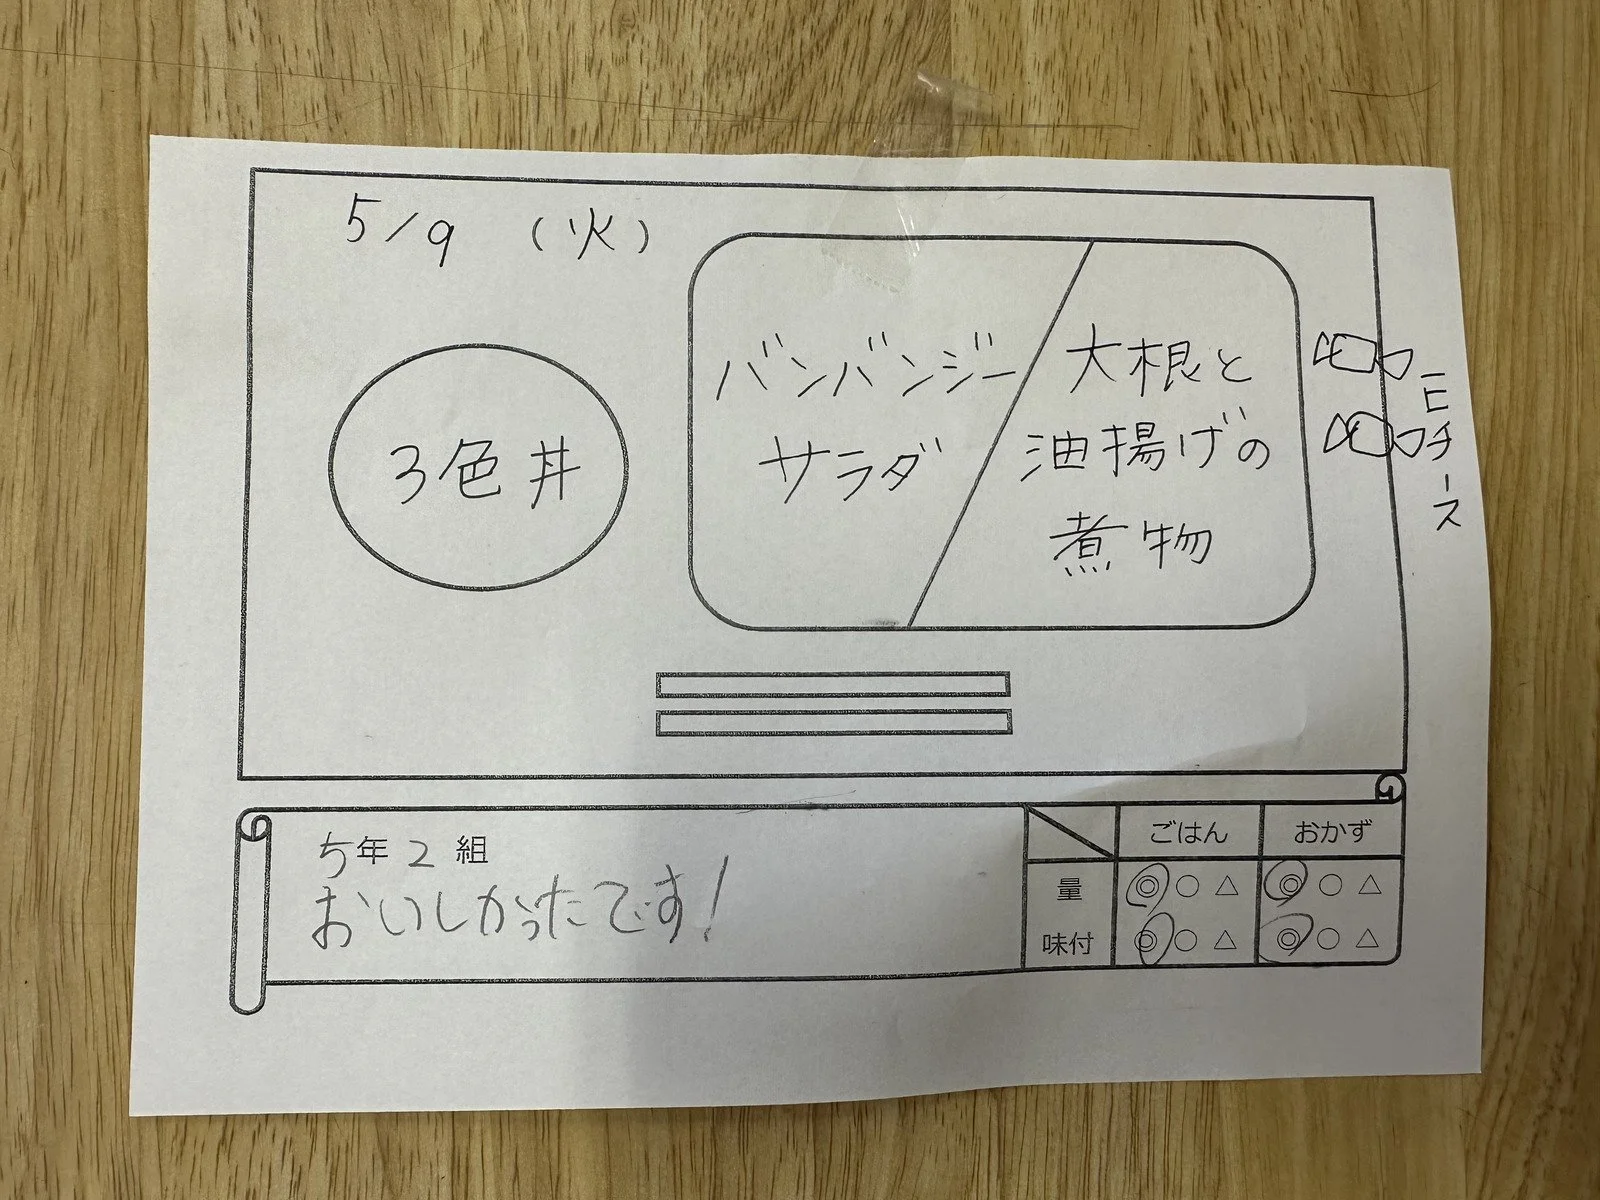 5/9 (火)
3色丼
バンバンジー
サラダ
大根と
油揚げの
煮物
チーズ
5年2組
おいしかったです!
ごはん おかず
量 ◎ ○ △ ◎ ○ △
味付 ◎ ○ △ ◎ ○ △